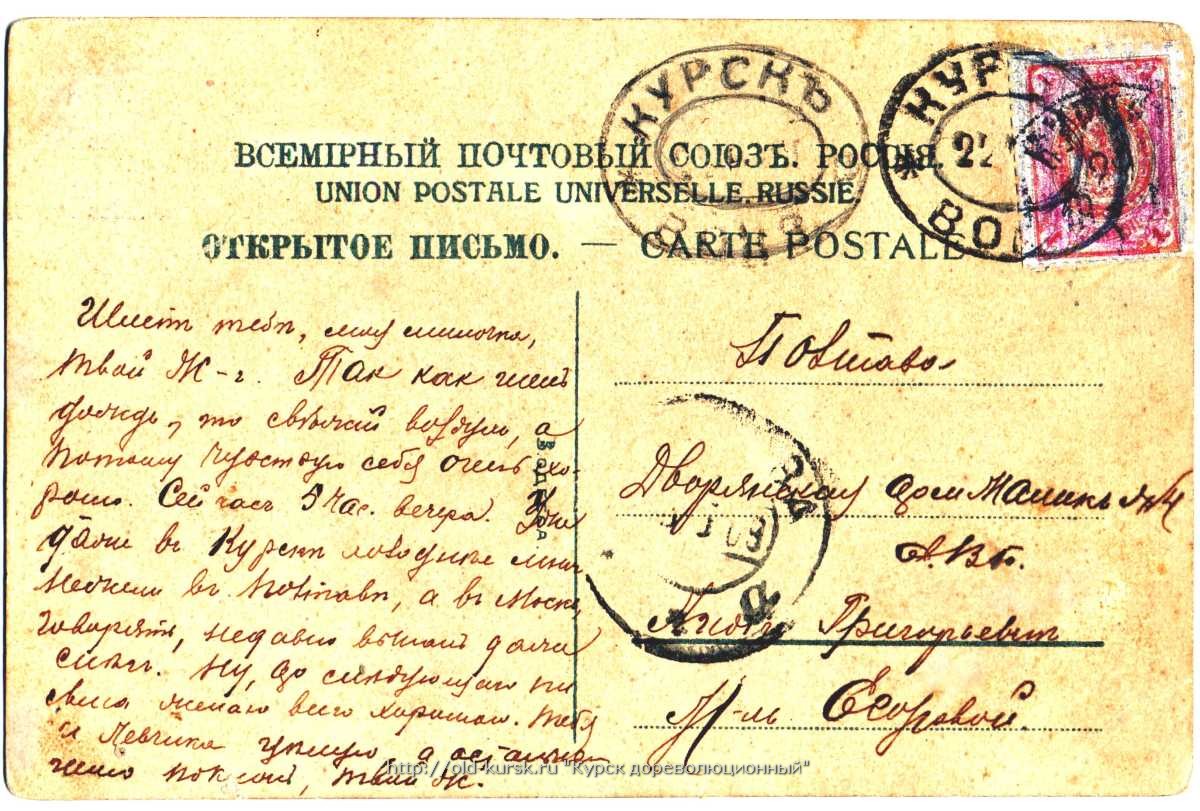 КУРСКЪ
КУР
22
ВО
ВСЕМІРНЫЙ ПОЧТОВЫЙ СОЮЗЪ. РОССІЯ.
UNION POSTALE UNIVERSELLE. RUSSIE.
ОТКРЫТОЕ ПИСЬМО. — CARTE POSTALE
Шлетъ тебѣ, моя милочка,
твой Ж-г. Такъ какъ шелъ
дождь, то свѣжій воздухъ, а
потому чувствую себя очень хо-
рошо. Сейчасъ 5 час. вечера.
даже въ Курскѣ холоднѣе
нежели въ Полтавѣ, а въ Москвѣ,
говорятъ, недавно выпалъ даже
снѣгъ. Ну, до слѣдующаго пи
сьма желаю всего хорошаго. Тебя
и Левчика цѣлую, а остальнымъ
шлю поклонъ, твой Ж.
Полтава
Дворянская домъ
Д. В. Б.
Григорьевнѣ
Егоровой.
http://old-kursk.ru "Курск дореволюционный"